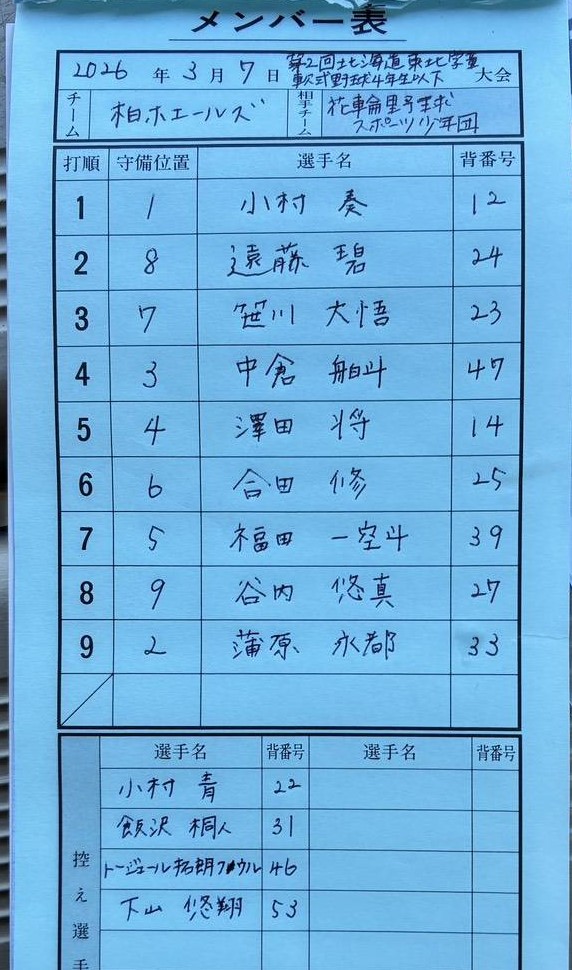 メンバー表
2026 年 3 月 7 日 第2回北海道東北学童軟式野球4年生以下 大会
チーム 柏ホエールズ 相手チーム 花輪野球スポーツ少年団
打順 守備位置 選手名 背番号
1 1 小村 奏 12
2 8 遠藤 碧 24
3 7 笹川 大悟 23
4 3 中倉 舶斗 47
5 4 澤田 将 14
6 6 合田 修 25
7 5 福田 一空斗 39
8 9 谷内 悠真 27
9 2 蒲原 永都 33
選手名 背番号 選手名 背番号
小村 青 22
飯沢 桐人 31
トージェール拓朗 46
下山 悠翔 53
控え選手